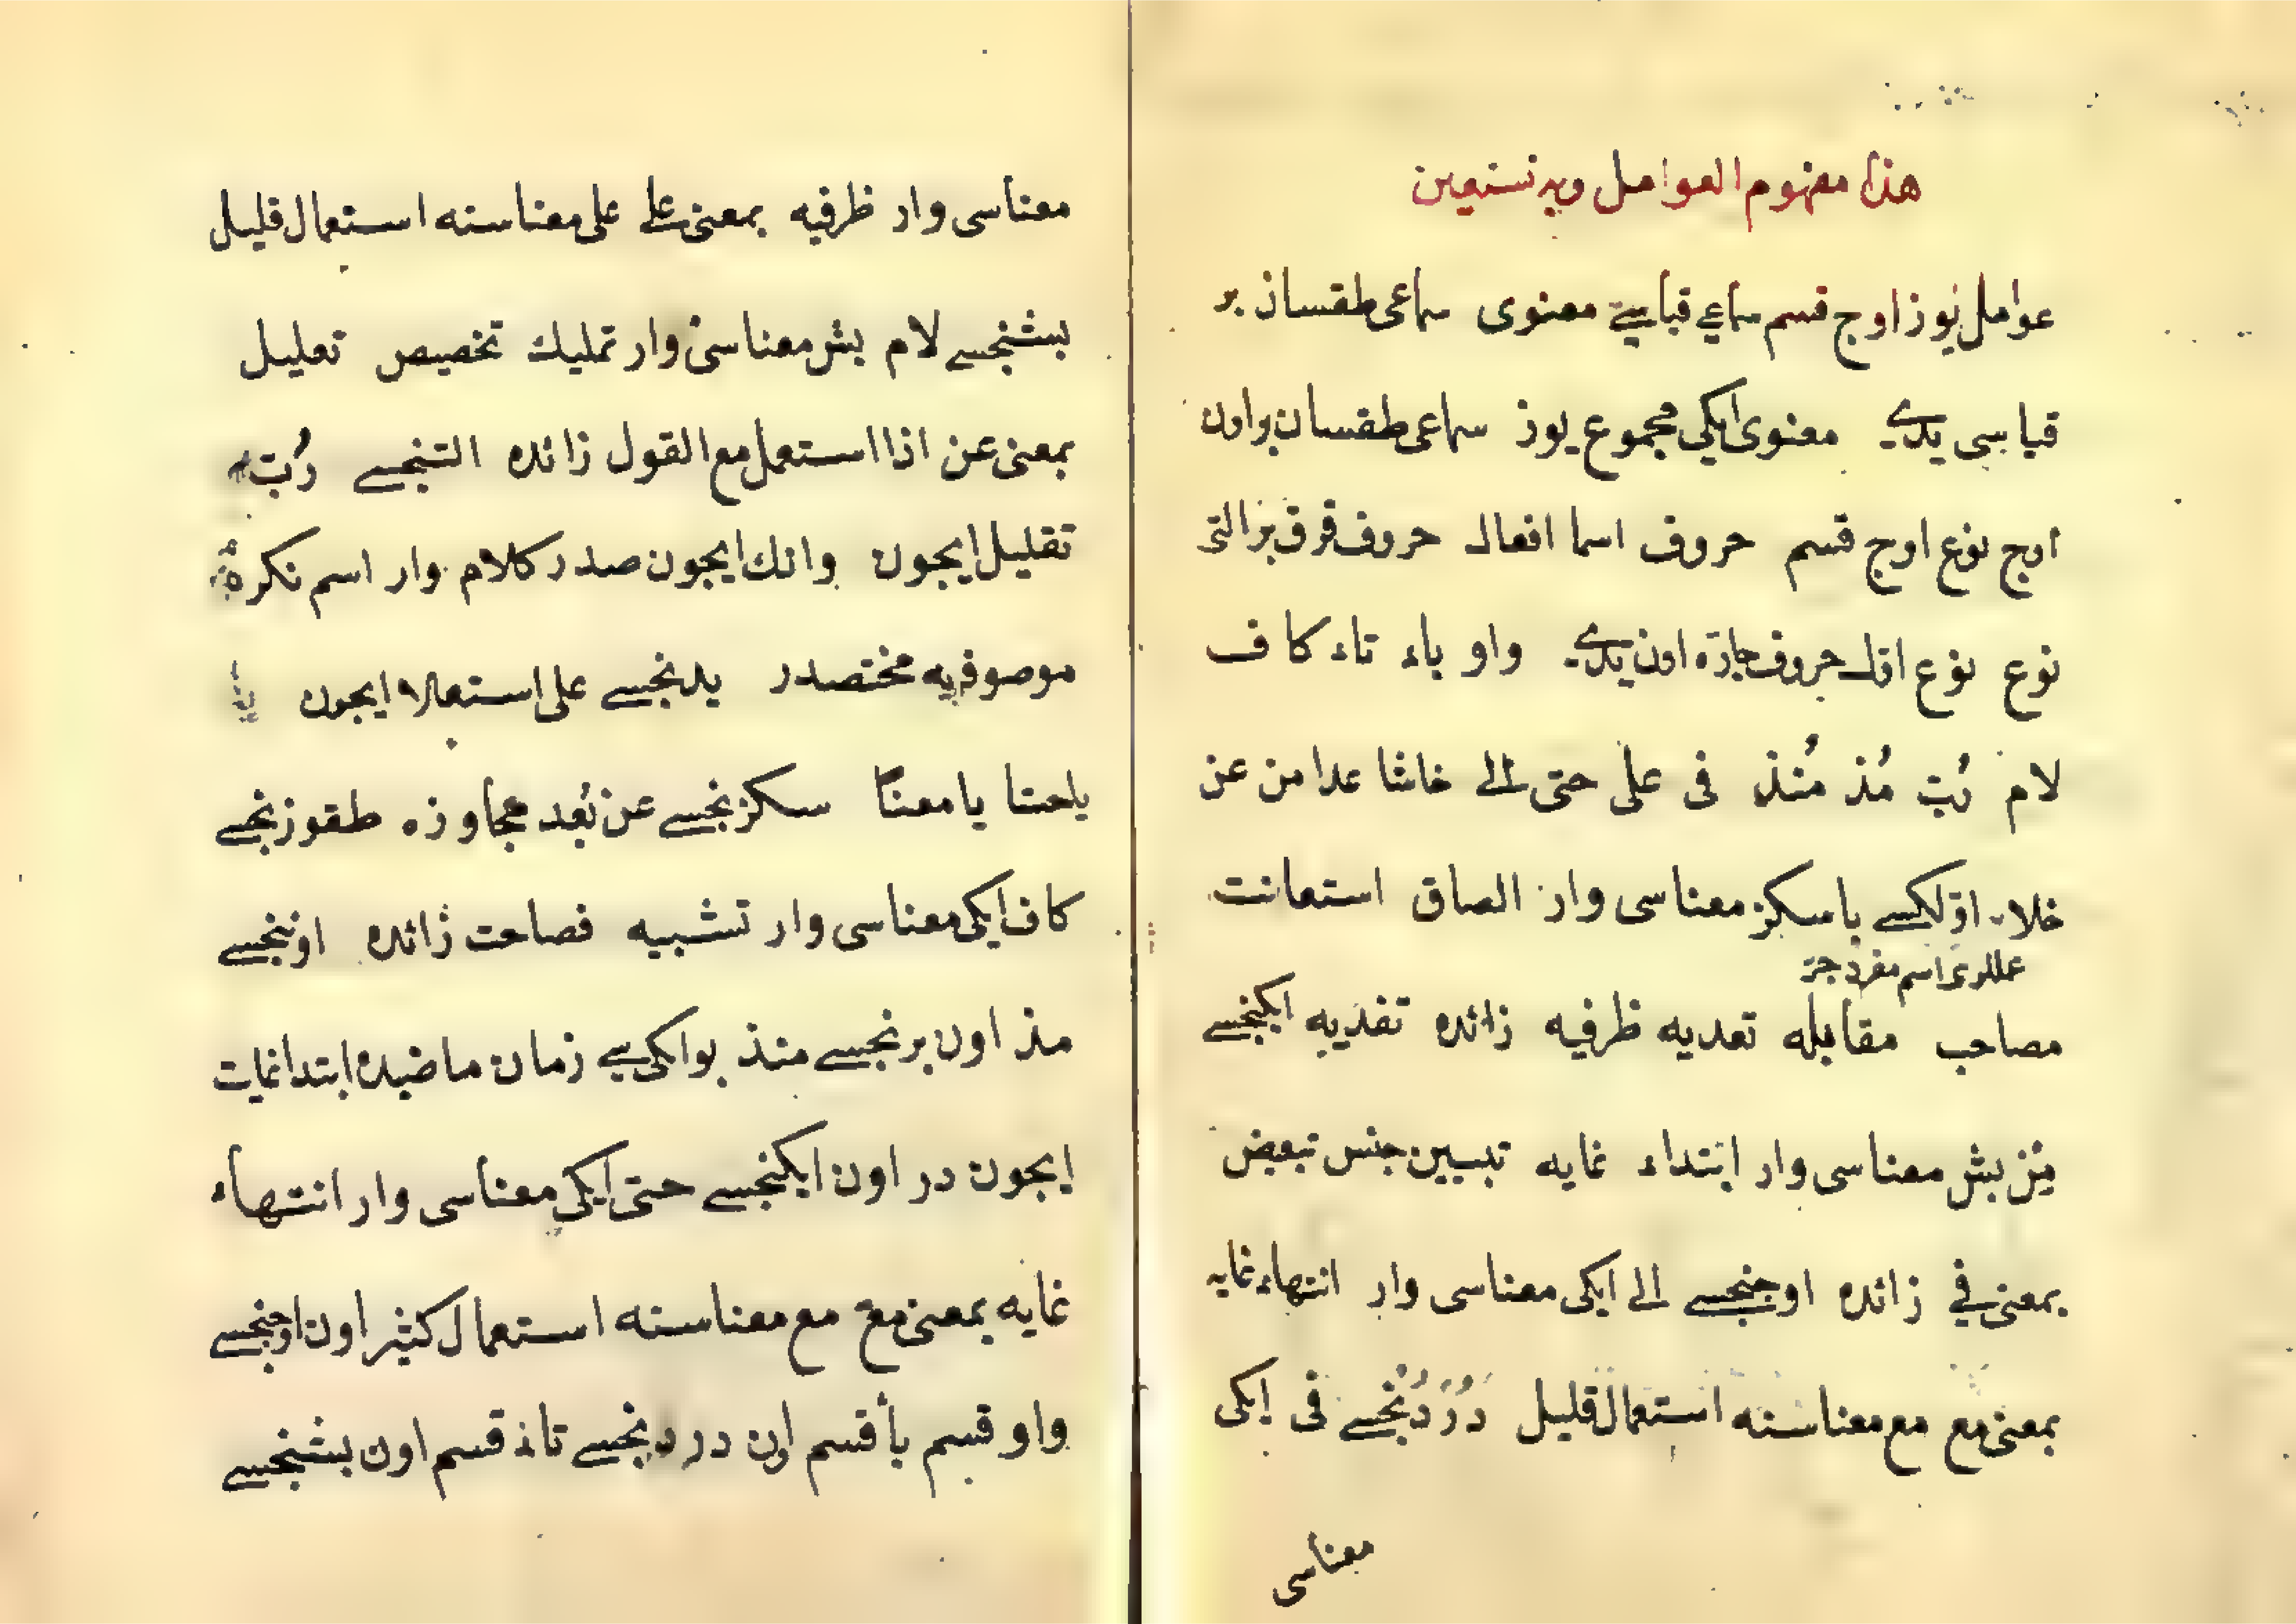 هذا مفهوم العوامل وبه نستعين
عوامل يوز اوج قسم سماعي قياسي معنوى سماعى طقسان بر
قياسى يدى معنوى ايكى مجموع يوز سماعى طقسان بر اون
اوج نوع اوج قسم حروف اسما افعال حروف قرق بر التى
نوع نوع اول حروف جاره اون يدى واو باء تاء كاف
لام رُبّ مُذ مُنذ فى على حتى الى حاشا عدا من عن
خلا اوّلكسى با سكز معناسى وار الصاق استعانت
عمللرى اسم مفرد جرّ
مصاحب مقابله تعديه ظرفيه زائده تفديه ايكنجسى
مِن بش معناسى وار ابتداء غايه تبيين جنس تبعيض
بمعنى فى زائده اوجنجسى الى ايكى معناسى وار انتهاء غايه
بمعنى مع مع معناسنه استعمال قليل دُردُنجسى فى ايكى
معناسى
معناسى وار ظرفيه بمعنى على على معناسنه استعمال قليل
بشنجسى لام بش معناسى وار تمليك تخصيص تعليل
بمعنى عن اذا استعمل مع القول زائده التنجسى رُبّ
تقليل ايجون وانك ايجون صدر كلام وار اسم نكره
موصوفيه مختصدر يدنجسى على استعلا ايجون
يا حسّا يا معناً سكزنجسى عن بُعد مجاوزه طقوزنجسى
كاف ايكى معناسى وار تشبيه فصاحت زائده اوننجسى
مذ اون برنجسى منذ بو ايكيسى زمان ماضيده ابتدا غايت
ايجون در اون ايكنجسى حتى ايكى معناسى وار انتهاء
غايه بمعنى مع مع معناسنه استعمال كثير اون اوجنجسى
واو قسم با قسم اون دردنجسى تاء قسم اون بشنجسى